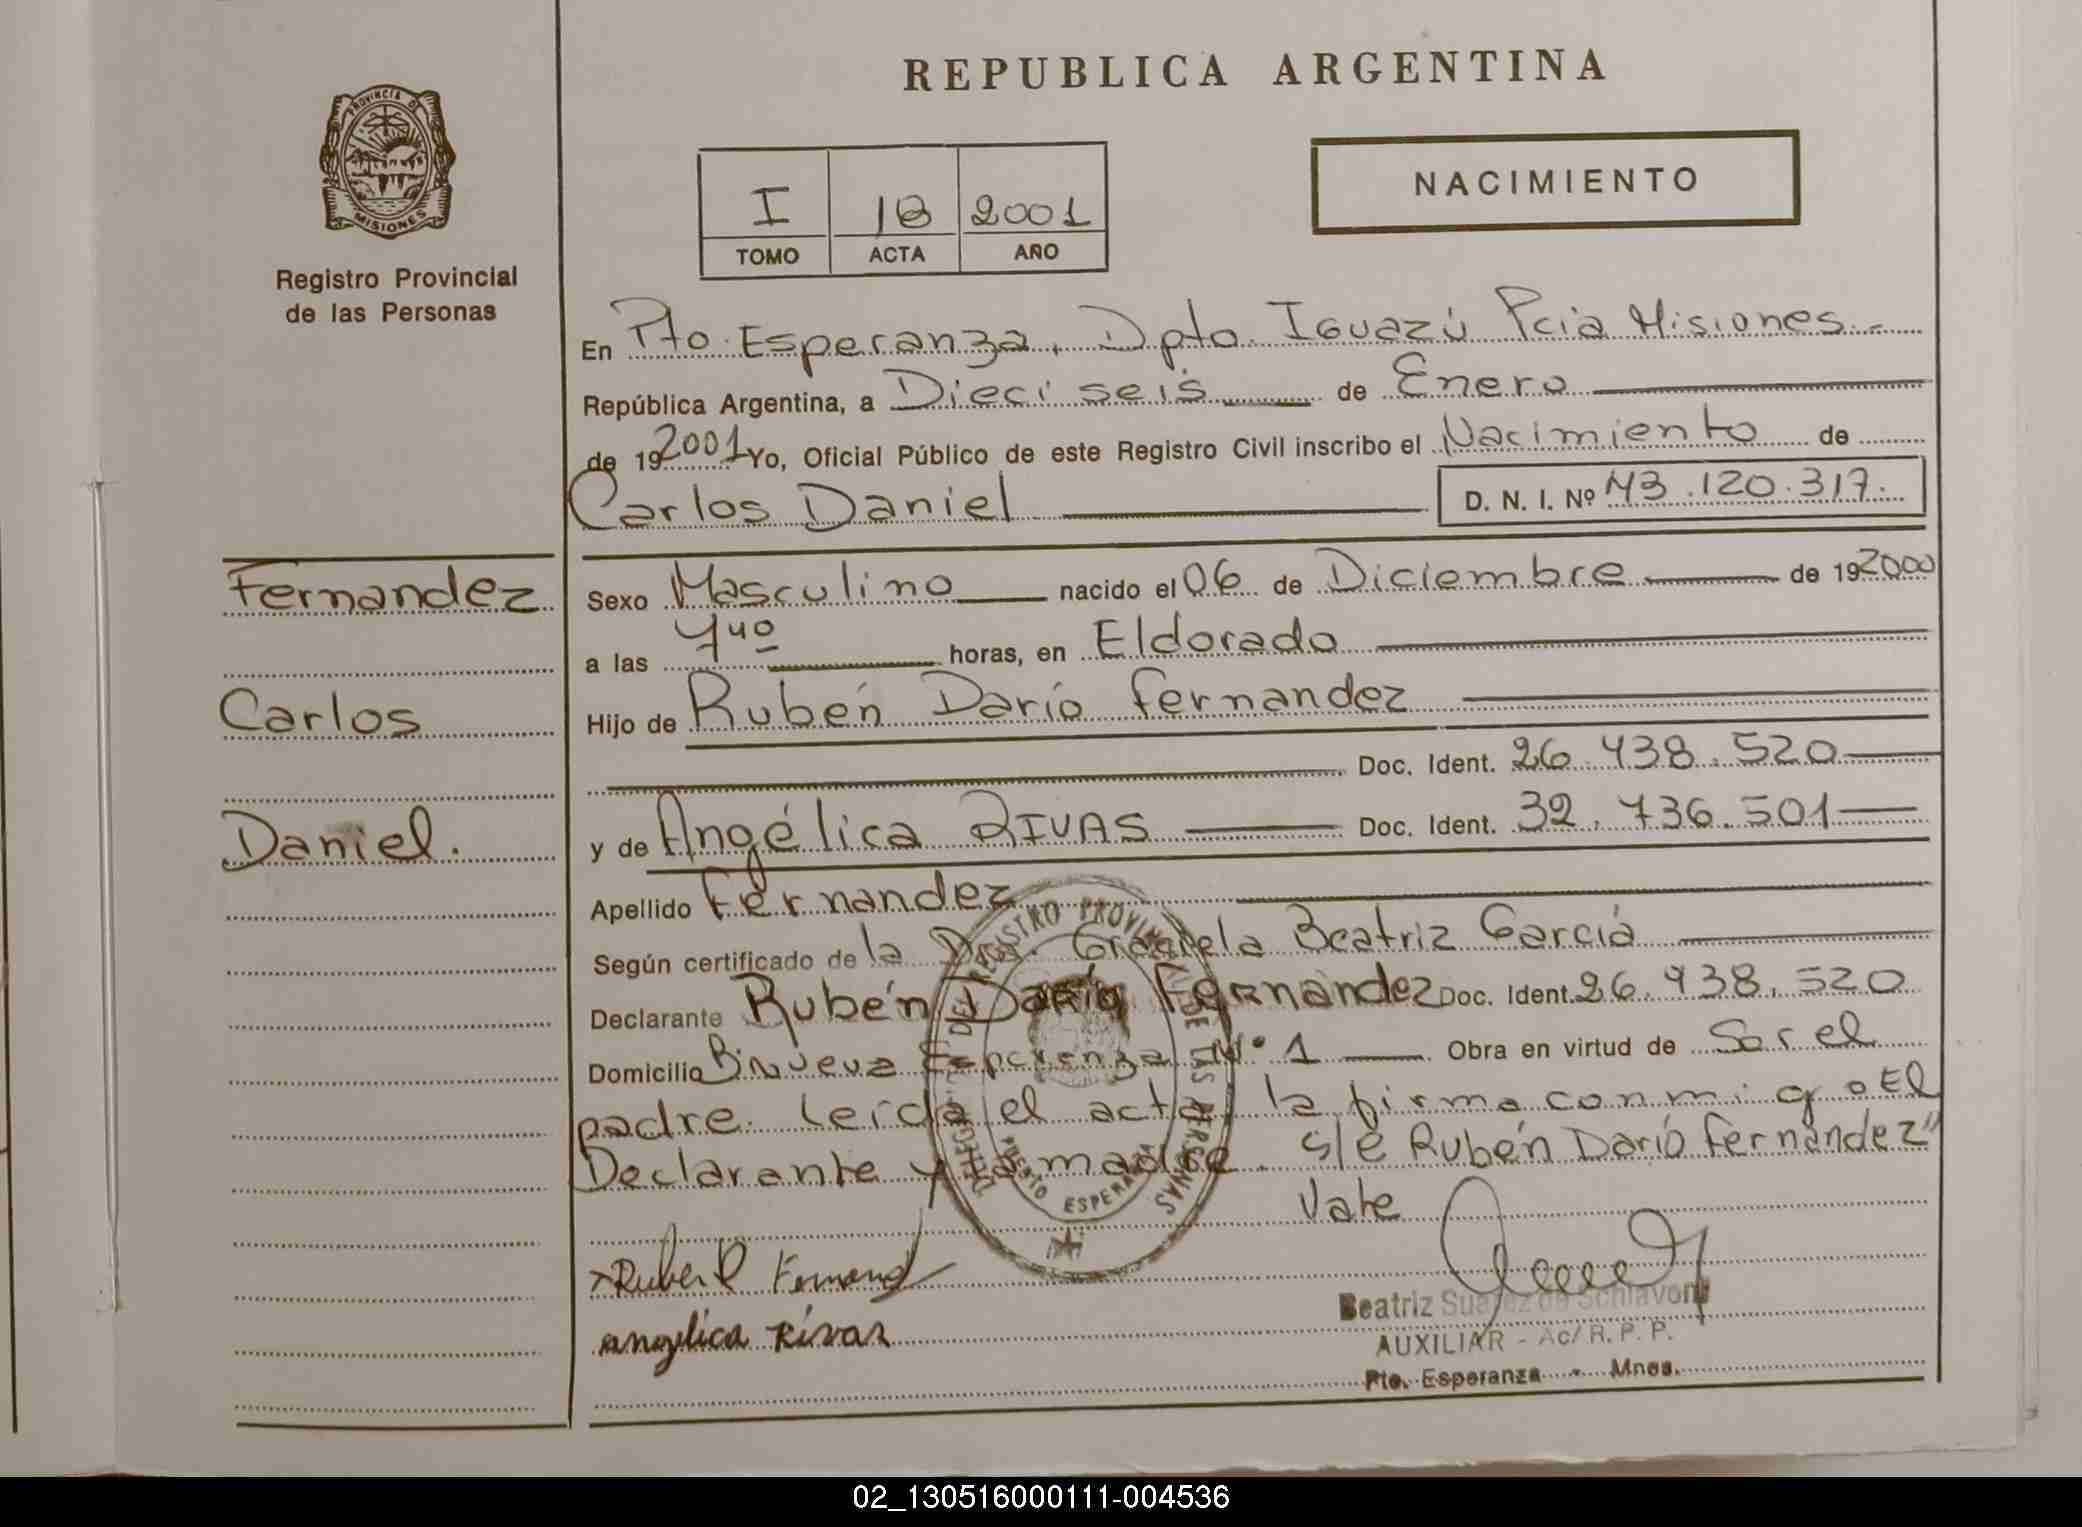 REPUBLICA ARGENTINA
PROVINCIA DE
MISIONES
Registro Provincial
de las Personas
I 18 2001
TOMO ACTA AÑO
NACIMIENTO
En Pto. Esperanza, Dpto. Iguazú Pcia Misiones.-
República Argentina, a Dieci seis de Enero
de 192001 Yo, Oficial Público de este Registro Civil inscribo el Nacimiento de
Carlos Daniel D. N. I. Nº 43.120.317.
Fernandez
Carlos
Daniel.
Sexo Masculino nacido el 06 de Diciembre de 192000
a las 4 40 horas, en Eldorado
Hijo de Rubén Darío Fernandez
Doc. Ident. 26.438.520
y de Angélica RIVAS Doc. Ident. 32.736.501
Apellido Fernandez
Según certificado de la Dra. Graciela Beatriz García
Declarante Rubén Darío Fernández Doc. Ident. 26.938.520
Domicilio B: Nueva Esperanza Nº 1 Obra en virtud de Ser el
padre. leída el acta, la firma conmigo El
Declarante y la madre. S/e Rubén Darío Fernández"
Vale
Ruben D Fernand
angelica Rivas
REGISTRO PROVINCIAL DE LAS PERSONAS
PUERTO ESPERANZA
Beatriz Suarez de Schiavoni
AUXILIAR - Ac/ R. P. P.
Pto. Esperanza - Mnes.
02_130516000111-004536